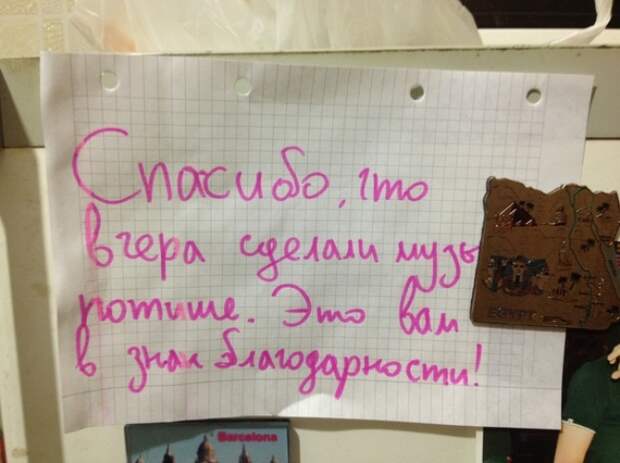 Спасибо, что
вчера сделали музы
потише. Это вам
в знак благодарности!
EGYPT
Barcelona